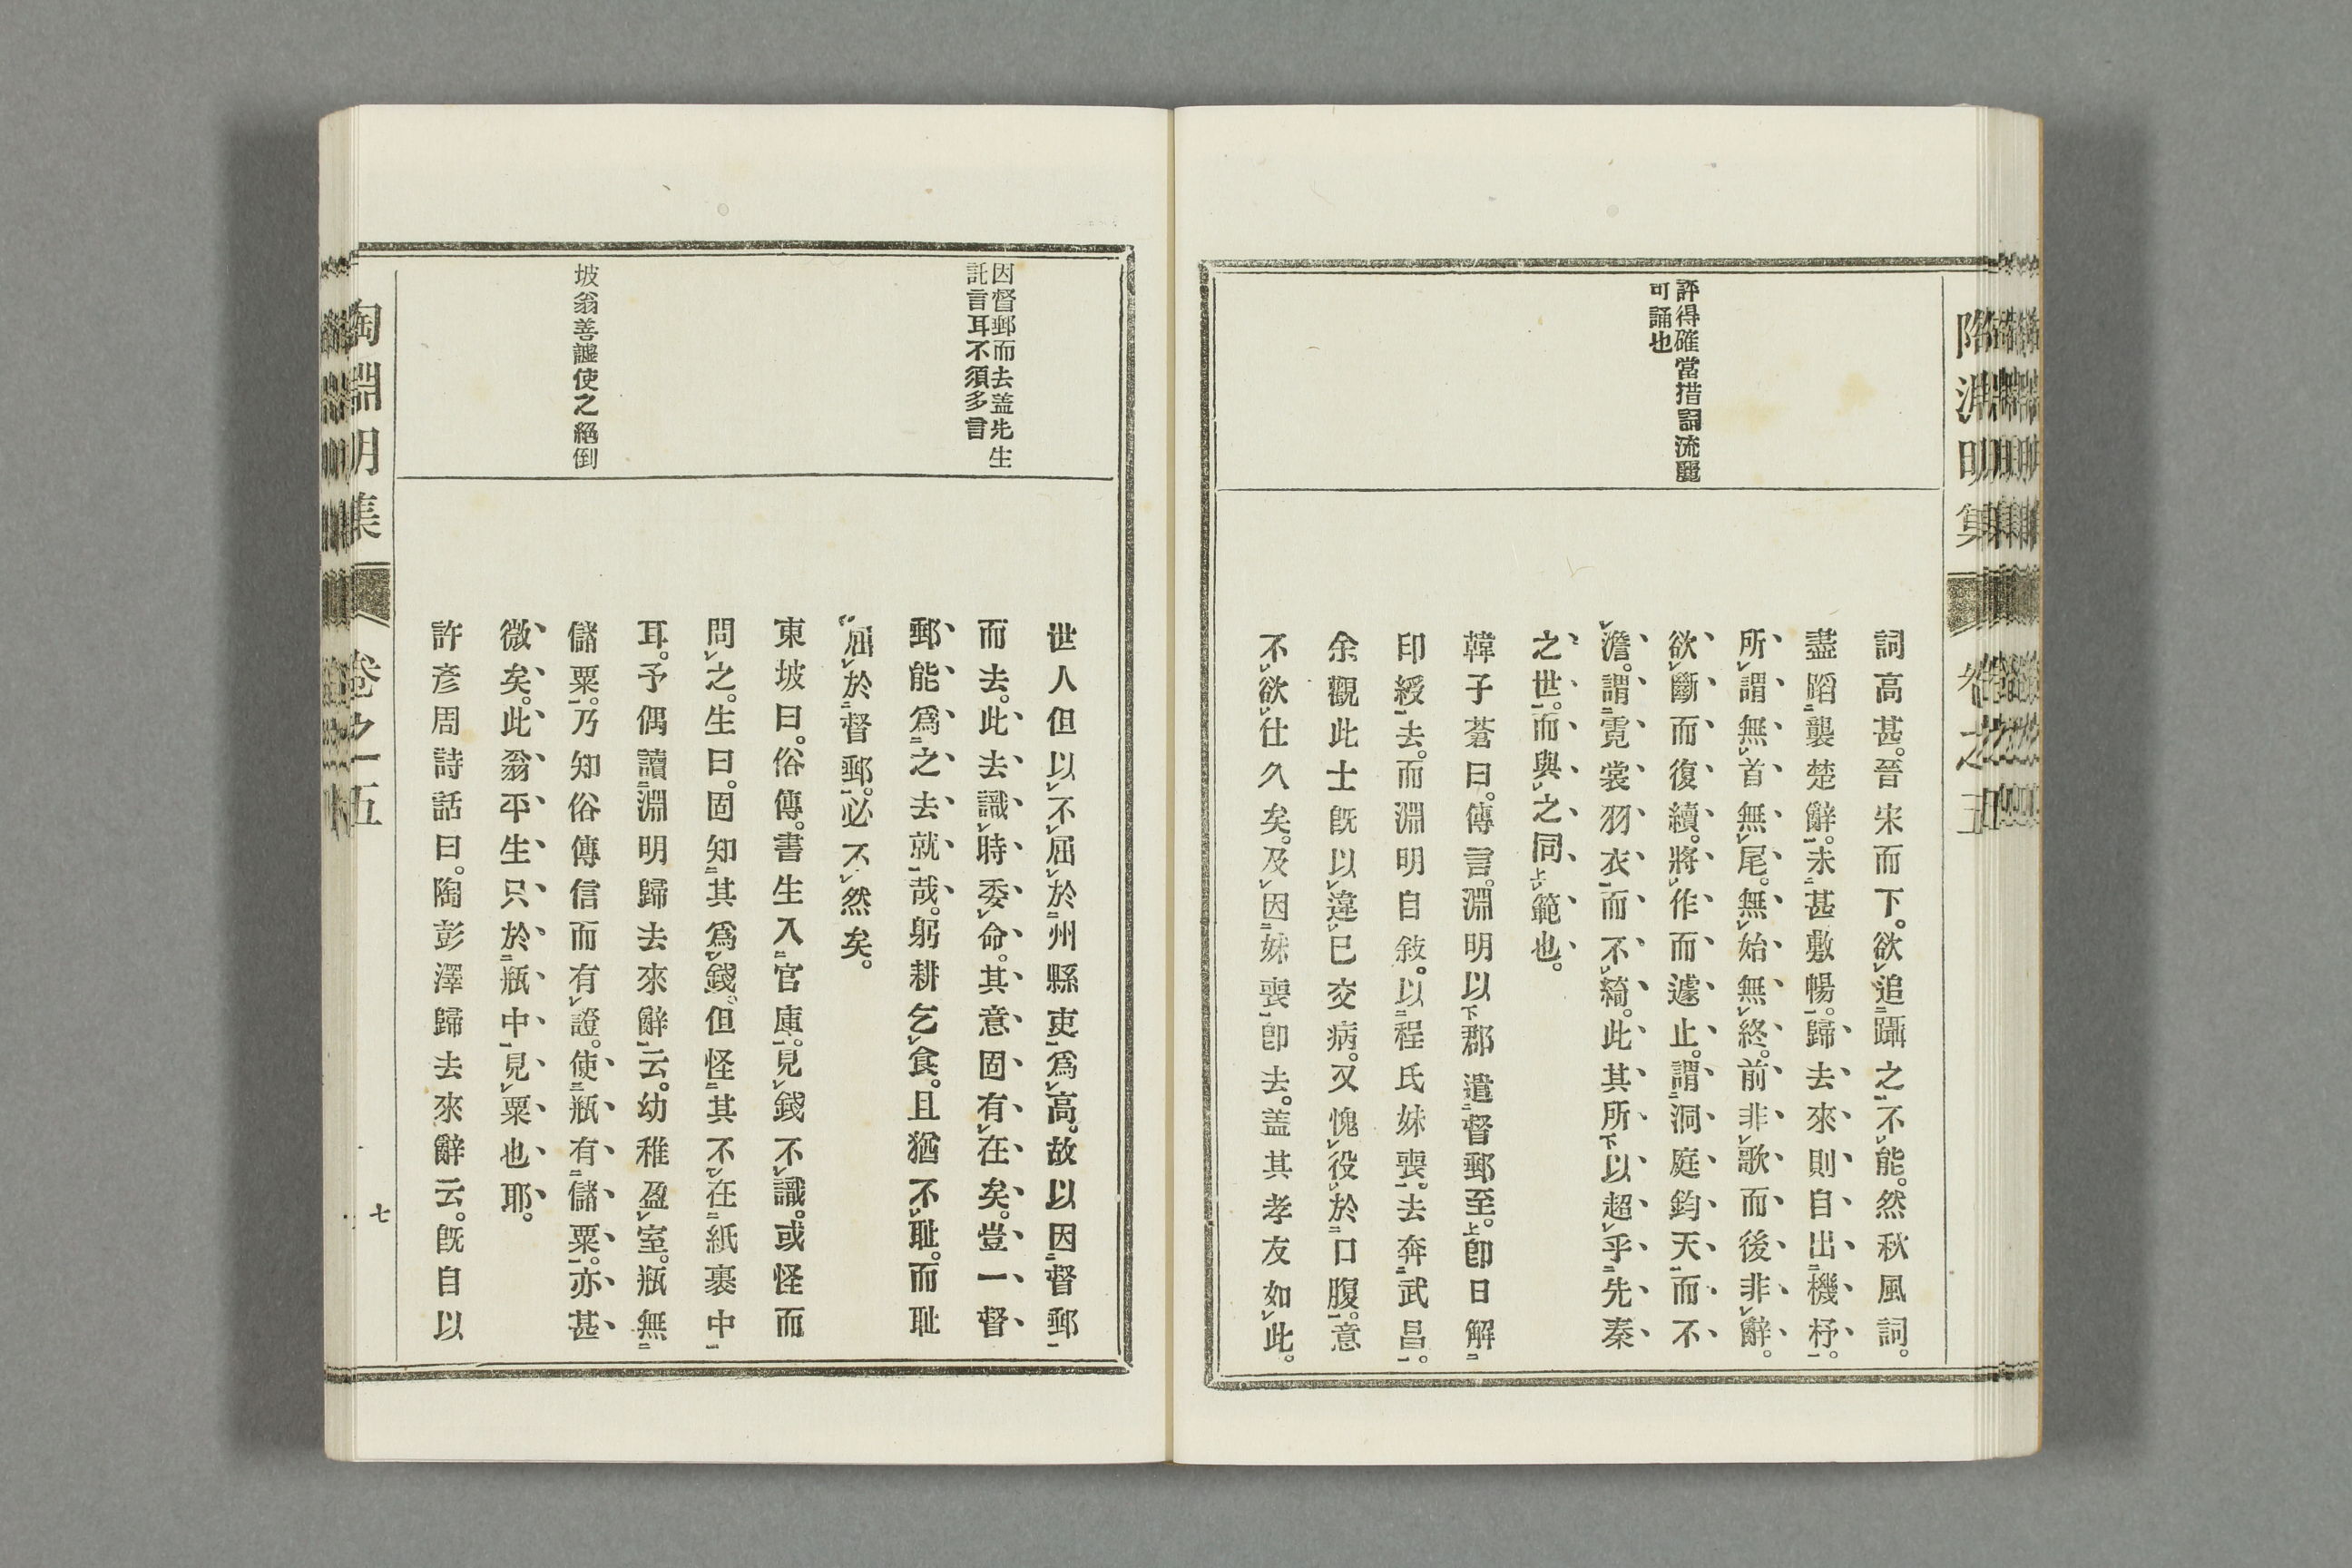 陶淵明集 卷之五
評得確當措詞流麗
可誦也
詞高甚。晉宋而下。欲追躡之不能。然秋風詞。
盡蹈襲楚辭。未甚敷暢。歸去來則自出機杼。
所謂無首無尾。無始無終。前非歌而後非辭。
欲斷而復續。將作而遽止。謂洞庭鈞天而不
澹。謂霓裳羽衣而不綺。此其所以超乎先秦
之世。而與之同範也。
韓子蒼曰。傳言。淵明以郡遣督郵至。卽日解
印綬去。而淵明自敍。以程氏妹喪。去奔武昌。
余觀此士旣以違已交病。又愧役於口腹。意
不欲仕久矣。及因妹喪卽去。盖其孝友如此。
因督郵而去盖先生
託言耳不須多言
坡翁善謔使之絕倒
世人但以不屈於州縣吏爲高。故以因督郵
而去。此去識時委命。其意固有在矣。豈一督
郵能爲之去就哉。躬耕乞食。且猶不耻。而耻
屈於督郵。必不然矣。
東坡曰。俗傳。書生入官庫。見錢不識。或怪而
問之。生曰。固知其爲錢。但怪其不在紙裹中
耳。予偶讀淵明歸去來辭云。幼稚盈室。瓶無
儲粟。乃知俗傳信而有證。使瓶有儲粟。亦甚
微矣。此翁平生只於瓶中見粟也耶。
許彥周詩話曰。陶彭澤歸去來辭云。旣自以
陶淵明集 卷之五 七